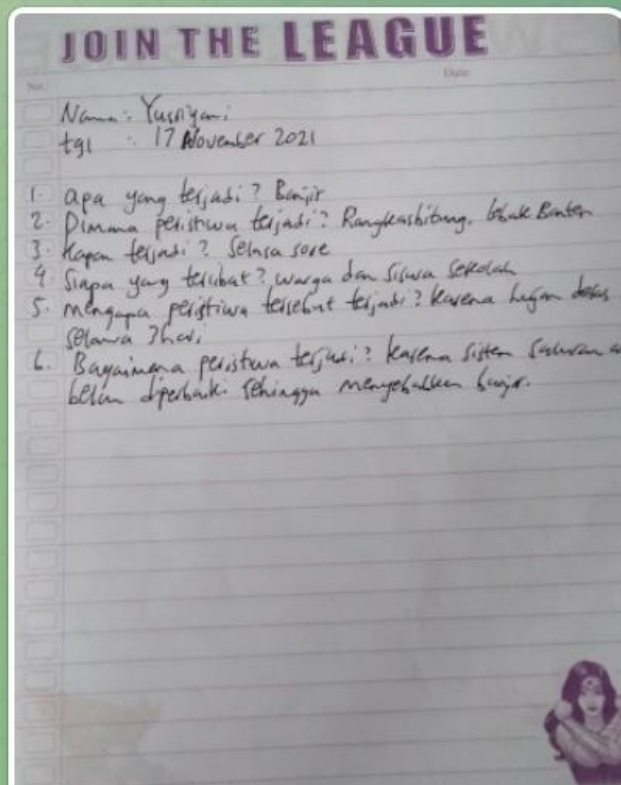 JOIN THE LEAGUE
No.
Date
Nama : Yusriyani
tgl : 17 November 2021
1. apa yang terjadi ? Banjir
2. Dimana peristiwa terjadi ? Rangkasbitung, Lebak Banten
3. Kapan terjadi ? Selasa sore
4. Siapa yang terlibat ? warga dan siswa sekolah
5. mengapa peristiwa tersebut terjadi ? karena hujan deras
selama 3 hari
6. Bagaimana peristiwa terjadi ? karena sistem saluran
belum diperbaiki sehingga menyebabkan banjir.